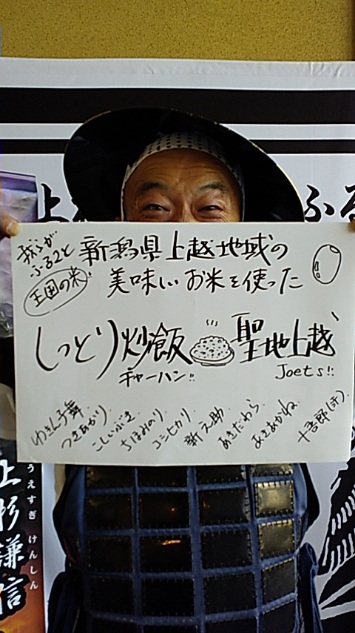 我らが
ふる里と
王国の米
新潟県上越地域の
美味しいお米を使った
しっとり炒飯
チャーハン!!
聖地上越
Joets!!
つきあかり
こしいぶき
ちほみのり
コシヒカリ
新之助
あきだわら
あさあかね
上
ふる
上杉謙信
うえすぎ けんしん